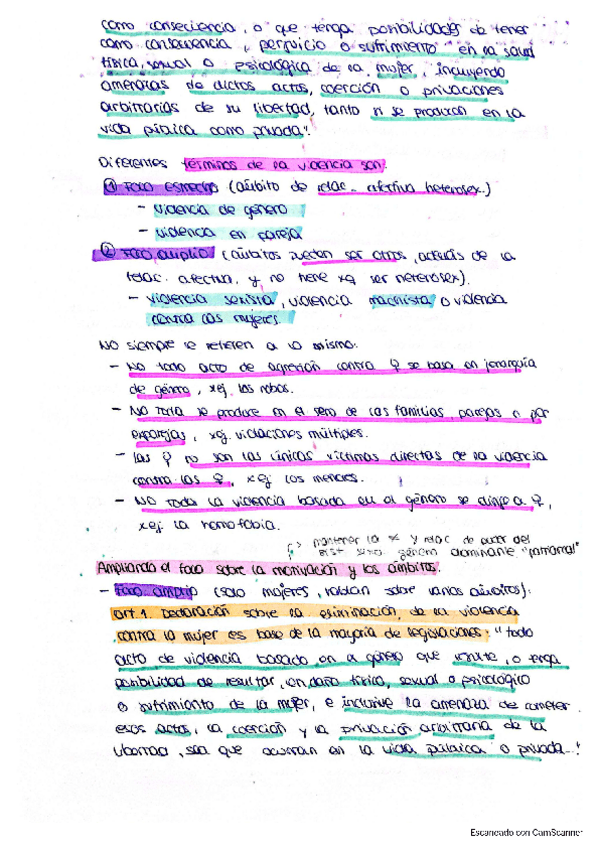 como consecuencia, o que tenga posibilidades de tener
como consecuencia, perjuicio o sufrimiento en la salud
física, sexual o psicológica de la mujer, incluyendo
amenazas de dichos actos, coerción o privaciones
arbitrarias de su libertad, tanto si se producen en la
vida pública como privada".
Diferentes términos de la violencia son:
① Foco estrecho (ámbito de relac. afectiva heterosex.)
- violencia de género
- violencia en pareja
② Foco amplio (ámbitos pueden ser otros, además de la
relac. afectiva, y no tiene xq ser heterosex).
- violencia sexista, violencia machista o violencia
contra las mujeres.
No siempre se refieren a lo mismo:
- No todo acto de agresión contra ♀ se basa en jerarquía
de género, xej. los robos.
- No toda se produce en el seno de las familias, parejas o por
exparejas, xej. violaciones múltiples.
- las ♀ no son las únicas víctimas directas de la violencia
contra las ♀, xej. los menores.
- No toda la violencia basada en el género se dirige a ♀,
xej. la homofobia.
mantener la y relac de poder del
sist género dominante "patriarcal"
Ampliando el foco sobre la motivación y los ámbitos.
- Foco amplio (solo mujeres, hablan sobre varios ámbitos):
art. 1. Declaración sobre la eliminación de la violencia
contra la mujer es base de la mayoría de legislaciones: "todo
acto de violencia basado en el género que resulte, o tenga
posibilidad de resultar, en daño físico, sexual o psicológico
o sufrimiento de la mujer, e inclusive la amenaza de cometer
esos actos, la coerción y la privación arbitraria de la
libertad, sea que ocurran en la vida pública o privada..."
Escaneado con CamScanner